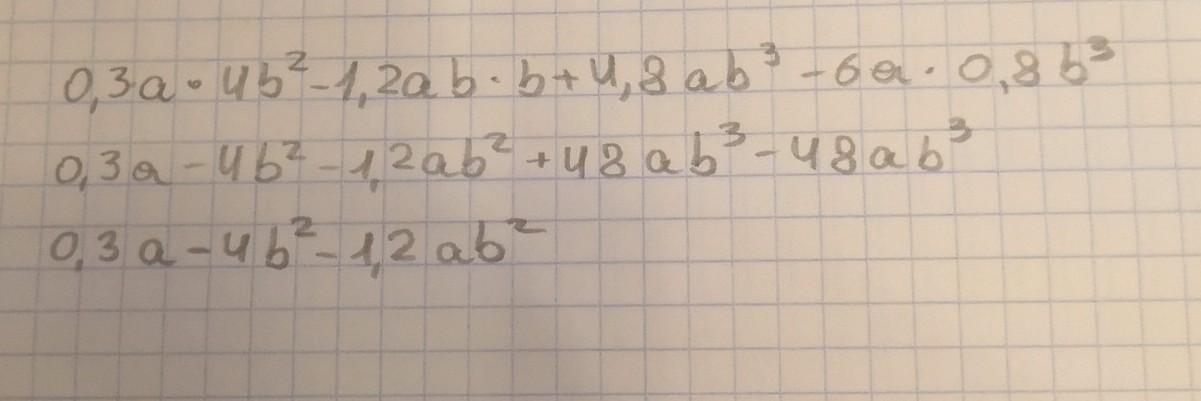 0,3a · 4b² - 1,2ab · b + 4,8ab³ - 6a · 0,8b³
0,3a - 4b² - 1,2ab² + 48ab³ - 48ab³
0,3a - 4b² - 1,2ab²